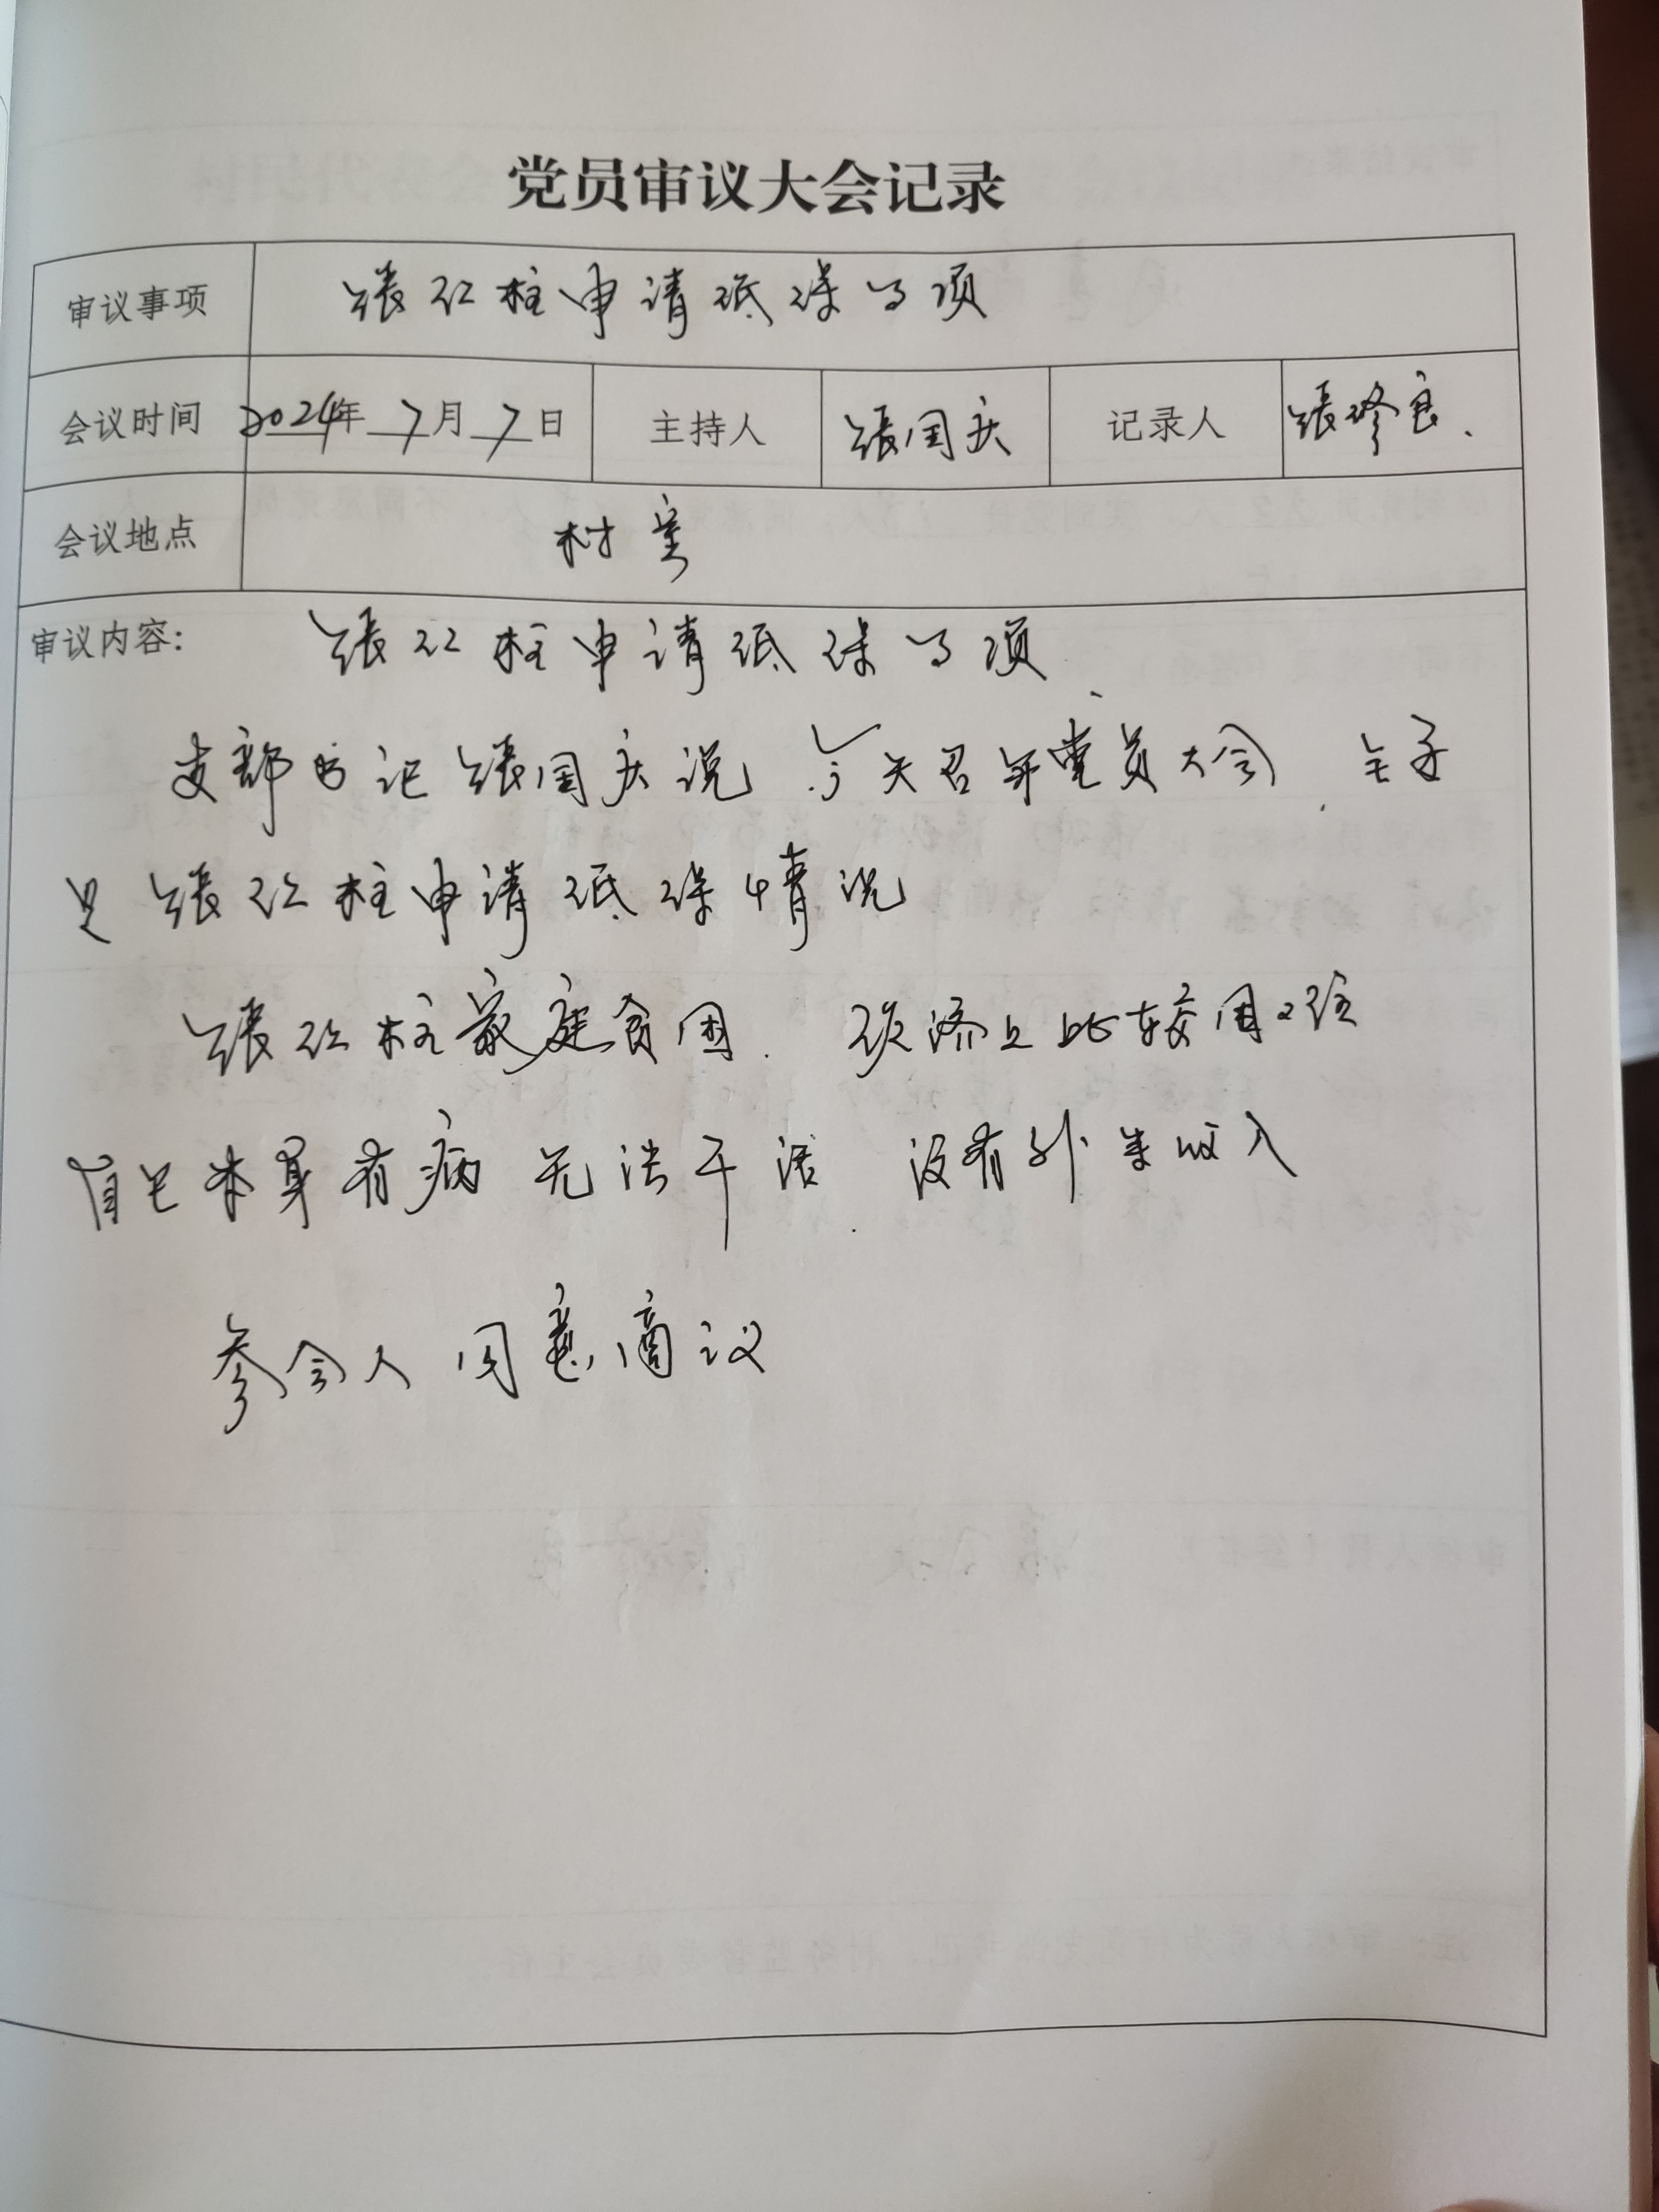 党员审议大会记录
审议事项 张红柱申请低保事项
会议时间 2024年7月7日 主持人 张国庆 记录人 张修良
会议地点 村室
审议内容： 张红柱申请低保事项、
支部书记张国庆说 今天召开党员大会，主要
是张红柱申请低保情况
张红柱家庭贫困. 经济上比较困难
自己本身有病 无法干活. 没有外来收入
参会人同意商议